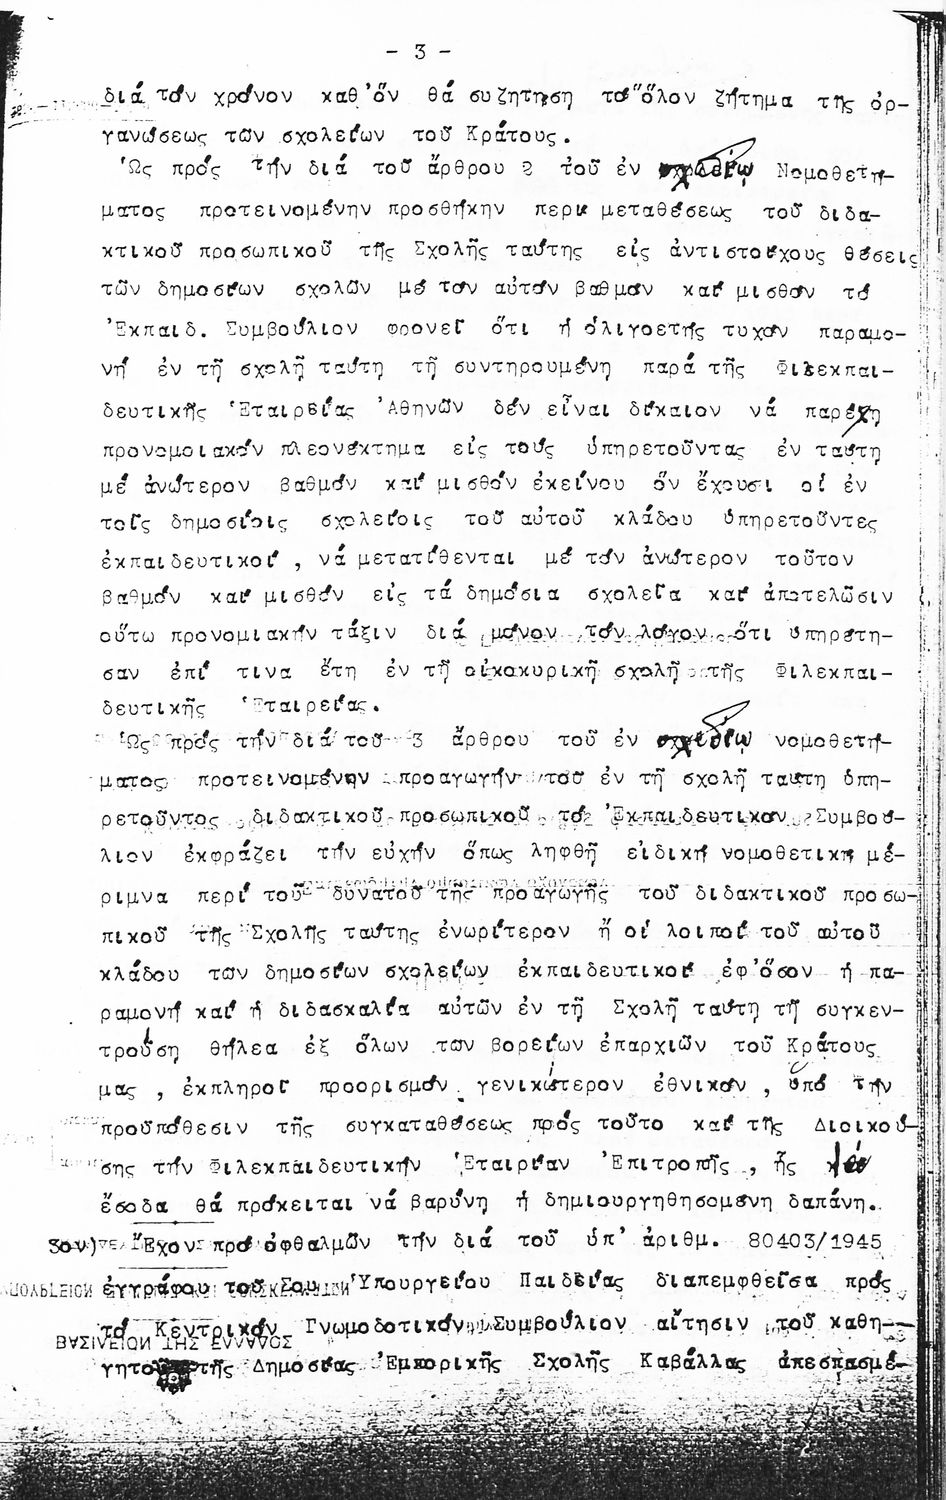 - 3 -
διά τόν χρόνον καθ'ὅν θά συζητηθη τό ὅλον ζήτημα της ὀρ-
γανώσεως τῶν σχολείων τοῦ Κράτους.
Ὡς πρός τήν διά τοῦ ἄρθρου 2 τοῦ ἐν σχεδίῳ Νομοθετή-
ματος προτεινομένην προσθήκην περί μεταθέσεως τοῦ διδα-
κτικοῦ προσωπικοῦ τῆς Σχολῆς ταύτης εἰς ἀντιστοίχους θέσεις
τῶν δημοσίων σχολῶν μέ τόν αὐτόν βαθμόν καί μισθόν τό
Ἐκπαιδ. Συμβούλιον φρονεῖ ὅτι ἡ ὀλιγοετής τυχόν παραμο-
νή ἐν τῇ σχολῇ ταύτῃ τῇ συντηρουμένῃ παρά τῆς Φιλεκπαι-
δευτικῆς Ἑταιρείας Ἀθηνῶν δέν εἶναι δίκαιον νά παρέχῃ
προνομοιακόν πλεονέκτημα εἰς τούς ὑπηρετοῦντας ἐν ταύτῃ
μέ ἀνώτερον βαθμόν καί μισθόν ἐκείνου ὅν ἔχουσι οἱ ἐν
τοῖς δημοσίοις σχολείοις τοῦ αὐτοῦ κλάδου ὑπηρετοῦντες
ἐκπαιδευτικοί , νά μετατίθενται μέ τόν ἀνώτερον τοῦτον
βαθμόν καί μισθόν εἰς τά δημόσια σχολεῖα καί ἀποτελῶσιν
οὕτω προνομιακήν τάξιν διά μόνον τόν λόγον ὅτι ὑπηρέτη-
σαν ἐπί τινα ἔτη ἐν τῇ οἰκοκυρικῇ σχολῇ τῆς Φιλεκπαι-
δευτικῆς Ἑταιρείας.
Ὡς πρός τήν διά τοῦ 3 ἄρθρου τοῦ ἐν σχεδίῳ νομοθετή-
ματος προτεινομένην προαγωγήν τοῦ ἐν τῇ σχολῇ ταύτῃ ὑπη-
ρετοῦντος διδακτικοῦ προσωπικοῦ τό Ἐκπαιδευτικόν Συμβού-
λιον ἐκφράζει τήν εὐχήν ὅπως ληφθῇ εἰδική νομοθετική μέ-
ριμνα περί τοῦ δυνατοῦ τῆς προαγωγῆς τοῦ διδακτικοῦ προσω-
πικοῦ τῆς Σχολῆς ταύτης ἐνωρίτερον ἤ οἱ λοιποί τοῦ αὐτοῦ
κλάδου τῶν δημοσίων σχολείων ἐκπαιδευτικοί ἐφ'ὅσον ἡ πα-
ραμονή καί ἡ διδασκαλία αὐτῶν ἐν τῇ Σχολῇ ταύτῃ τῇ συγκεν-
τρούσῃ θήλεα ἐξ ὅλων τῶν βορείων ἐπαρχιῶν τοῦ Κράτους
μας , ἐκπληροῖ προορισμόν γενικώτερον ἐθνικόν , ὑπό τήν
προϋπόθεσιν τῆς συγκαταθέσεως πρός τοῦτο καί τῆς Διοικού-
σης τήν Φιλεκπαιδευτικήν Ἑταιρίαν Ἐπιτροπῆς , ἧς
ἔσοδα θά πρόκειται νά βαρύνῃ ἡ δημιουργηθησομένη δαπάνη.
3ον) Ἔχον πρό ὀφθαλμῶν τήν διά τοῦ ὑπ' ἀριθμ. 80403/1945
ἐγγράφου τοῦ Σου Ὑπουργείου Παιδείας διαπεμφθεῖσα πρός
τό Κεντρικόν Γνωμοδοτικόν Συμβούλιον αἴτησιν τοῦ καθη-
γητοῦ τῆς Δημοσίας Ἐμπορικῆς Σχολῆς Καβάλλας ἀπεσπασμέ-